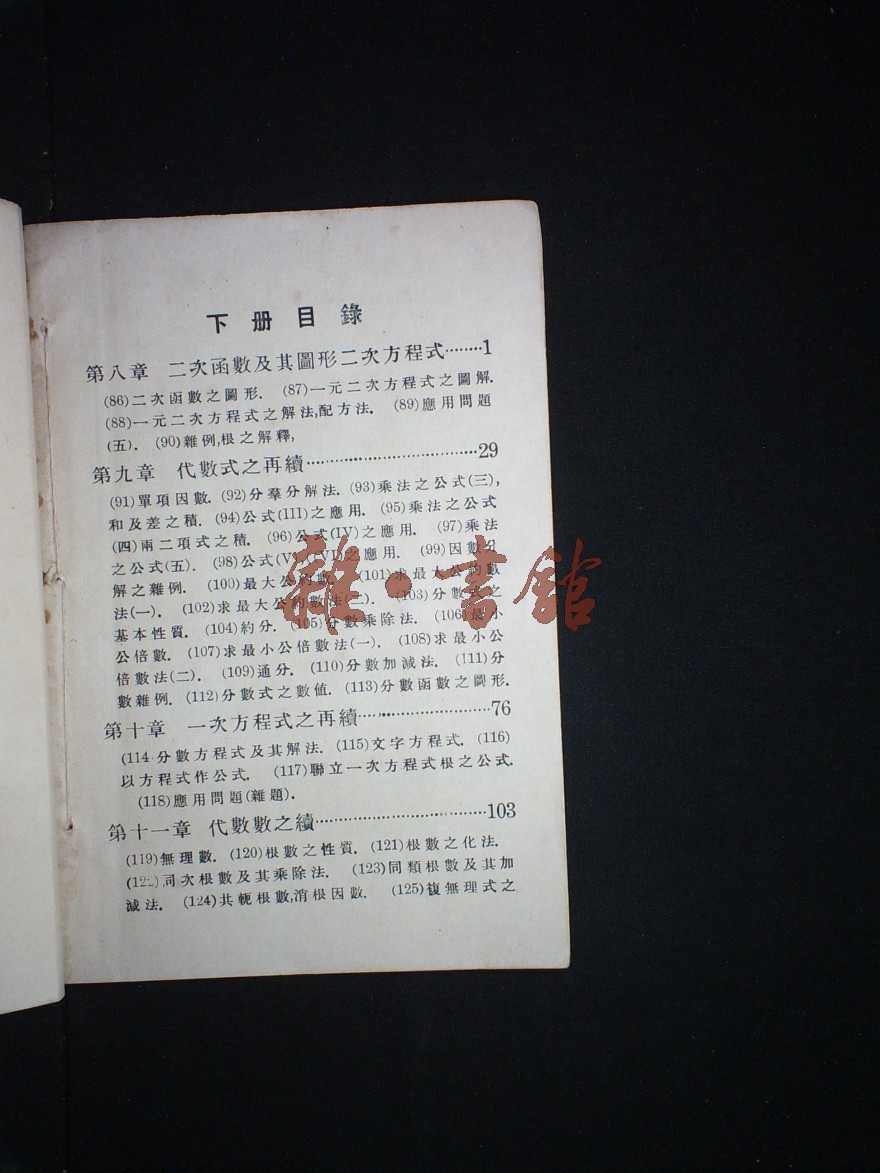 下册目錄
第八章 二次函數及其圖形二次方程式········1
(86)二次函數之圖形. (87)一元二次方程式之圖解.
(88)一元二次方程式之解法,配方法. (89)應用問題
(五). (90)雜例,根之解釋,
第九章 代數式之再續··································29
(91)單項因數. (92)分羣分解法. (93)乘法之公式(三),
和及差之積. (94)公式(III)之應用. (95)乘法之公式
(四)兩二項式之積. (96)公式(IV)之應用. (97)乘法
之公式(五). (98)公式(V)(VI)之應用. (99)因數分
解之雜例. (100)最大公約數. (101)求最大公約數
法(一). (102)求最大公約數法(二). (103)分數式之
基本性質. (104)約分. (105)分數乘除法. (106)最小
公倍數. (107)求最小公倍數法(一). (108)求最小公
倍數法(二). (109)通分. (110)分數加減法. (111)分
數雜例. (112)分數式之數值. (113)分數函數之圖形.
第十章 一次方程式之再續··························76
(114 分數方程式及其解法. (115)文字方程式. (116)
以方程式作公式. (117)聯立一次方程式根之公式.
(118)應用問題(雜題).
第十一章 代數數之續································103
(119)無理數. (120)根數之性質. (121)根數之化法.
(122)同次根數及其乘除法. (123)同類根數及其加
減法. (124)共軛根數,消根因數. (125)複無理式之
雜·書館